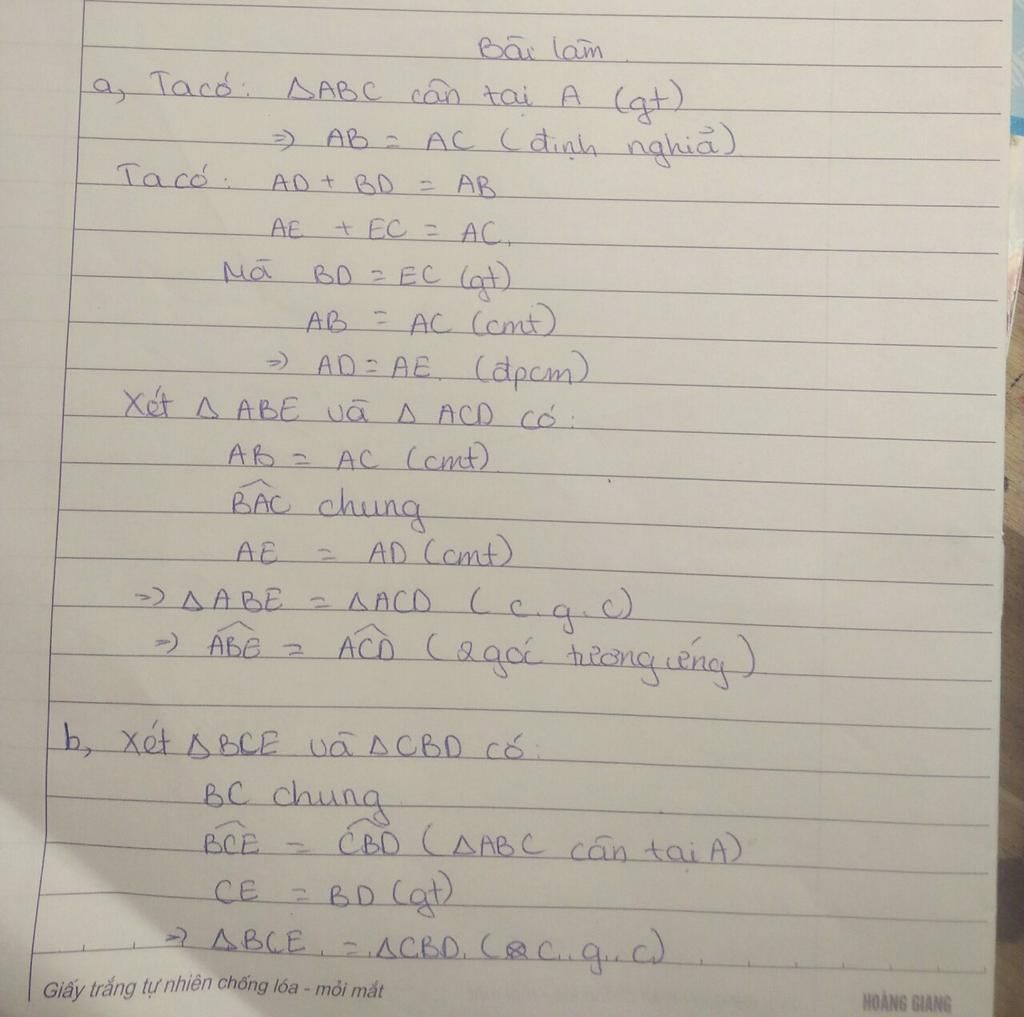 Bài làm
a, Ta có: ΔABC cân tại A (gt)
=> AB = AC (định nghiã)
Ta có: AD + BD = AB
AE + EC = AC.
Mà BD = EC (gt)
AB = AC (cmt)
=> AD = AE. (đpcm)
Xét Δ ABE và Δ ACD có:
AB = AC (cmt)
\widehat{BAC} chung
AE = AD (cmt)
=> ΔABE = ΔACD (c.g.c)
=> \widehat{ABE} = \widehat{ACD} (2 góc tương ứng)
b, Xét ΔBCE và ΔCBD có:
BC chung
\widehat{BCE} = \widehat{CBD} (ΔABC cân tại A)
CE = BD (gt)
=> ΔBCE = ΔCBD (c.g.c)
Giấy trắng tự nhiên chống lóa - mỏi mắt
HOÀNG GIANG